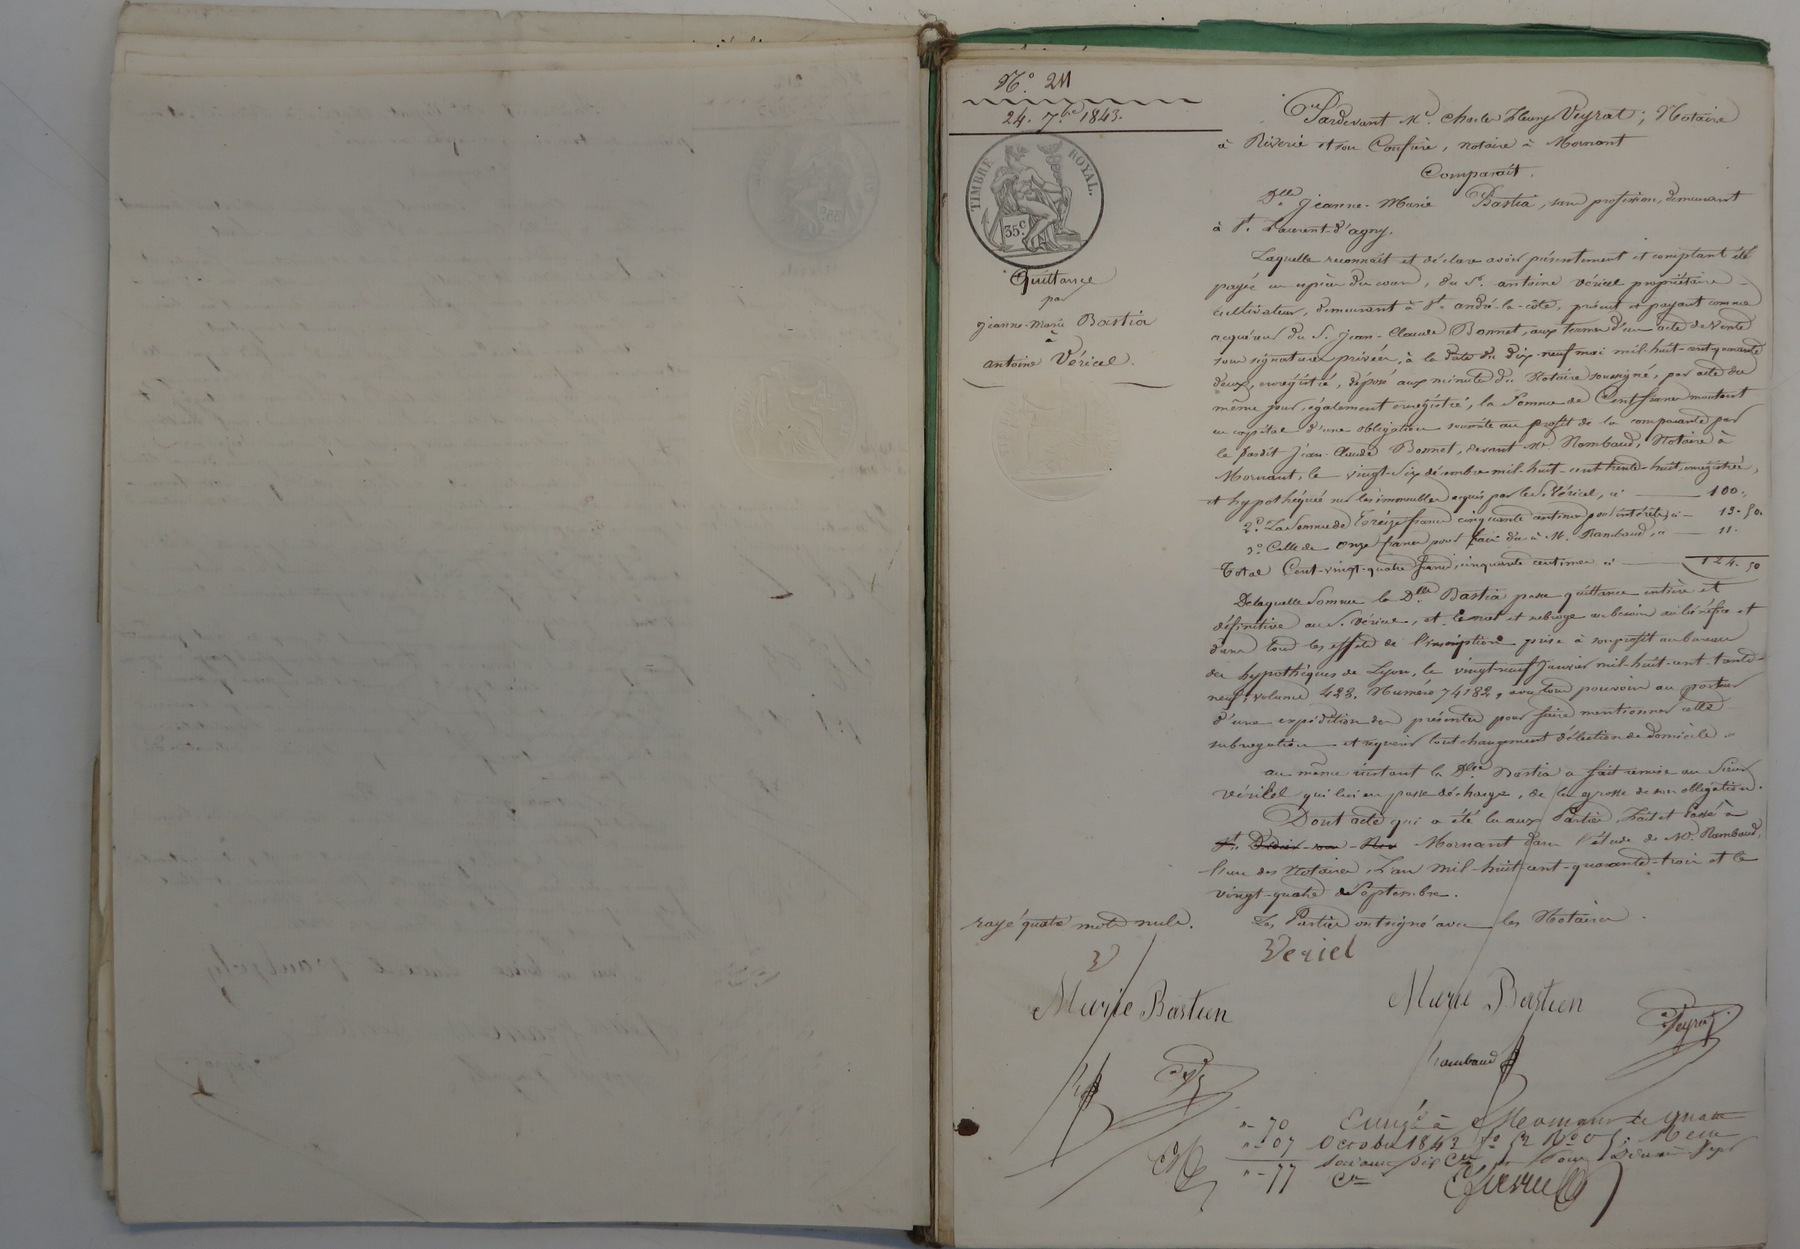 N.° 211
24. 7.bre 1843.
TIMBRE ROYAL.
35c
Quittance
par
jeanne-Marie Bastia
à
antoine Véricel.
Pardevant Me. Charles Fleury Veyrat, Notaire
à Riverie et son Confrère, notaire à Mornant
Comparait.
Dlle. jeanne-Marie Bastia, sans profession, demeurant
à St. Laurent-d'agny.
Laquelle reconnait et déclare avoir présentement et comptant été
payée en espèces du cours, du Sr. antoine véricel propriétaire-
cultivateur, demeurant à St. andré-la-côte, présent et payant comme
acquéreur du S. Jean-Claude Bonnet, aux termes d'un acte de vente
sous signatures privées, à la date du dix-neuf mai mil-huit-cent-quarante
deux, enregistré, déposé aux minutes du Notaire soussigné, par acte du
même jour, également enregistré, la Somme de Cent francs montant
en capital d'une obligation souscrite au profit de la comparante par
le Jean-Claude Bonnet, devant Me. Rambaud, Notaire à
Mornant, le vingt-Six décembre mil-huit-cent-trente-huit, enregistrée,
et hypothéquée sur les immeubles acquis par le S. Véricel, ci — 100.,
2°. La Somme de Treize francs cinquante centimes pour intérêts, ci — 13.50.
3° Celle de Onze francs pour frais dûs à M. Rambaud, ci — 11.
Total Cent-vingt-quatre francs, cinquante centimes ci — 124.50
De laquelle Somme la Dlle. Bastia passe quittance entière et
définitive au S. Véricel, et le met et subroge au besoin au bénéfice et
dans tous les effets de l'inscription prise à son profit au bureau
des hypothèques de Lyon, le vingt-neuf Janvier mil-huit-cent-trente-
neuf, volume 423, Numéro 74182, avec tout pouvoir au porteur
d'une expédition des présentes pour faire mentionner cette
subrogation et requérir tout changement d'élection de domicile.
au même instant la Dlle Bastia a fait remise au Sieur
véricel qui lui en passe décharge, de la grosse de son obligation.
Dont acte qui a été lu aux Parties, Fait et Passé à
St. Didier-sous-Riv Mornant dans l'étude de Me. Rambaud,
l'un des Notaires, L'an mil-huit-cent-quarante-trois et le
vingt-quatre Septembre.
rayé quatre mots nuls.
Les Parties ont signé avec les Notaires.
Vericl
V
Marie Bastien
Marie Bastien
Veyrat
Rambaud
"-70
"-07
"-77
Enregé à Mornant le quatre
Octobre 1843 fo 52 No